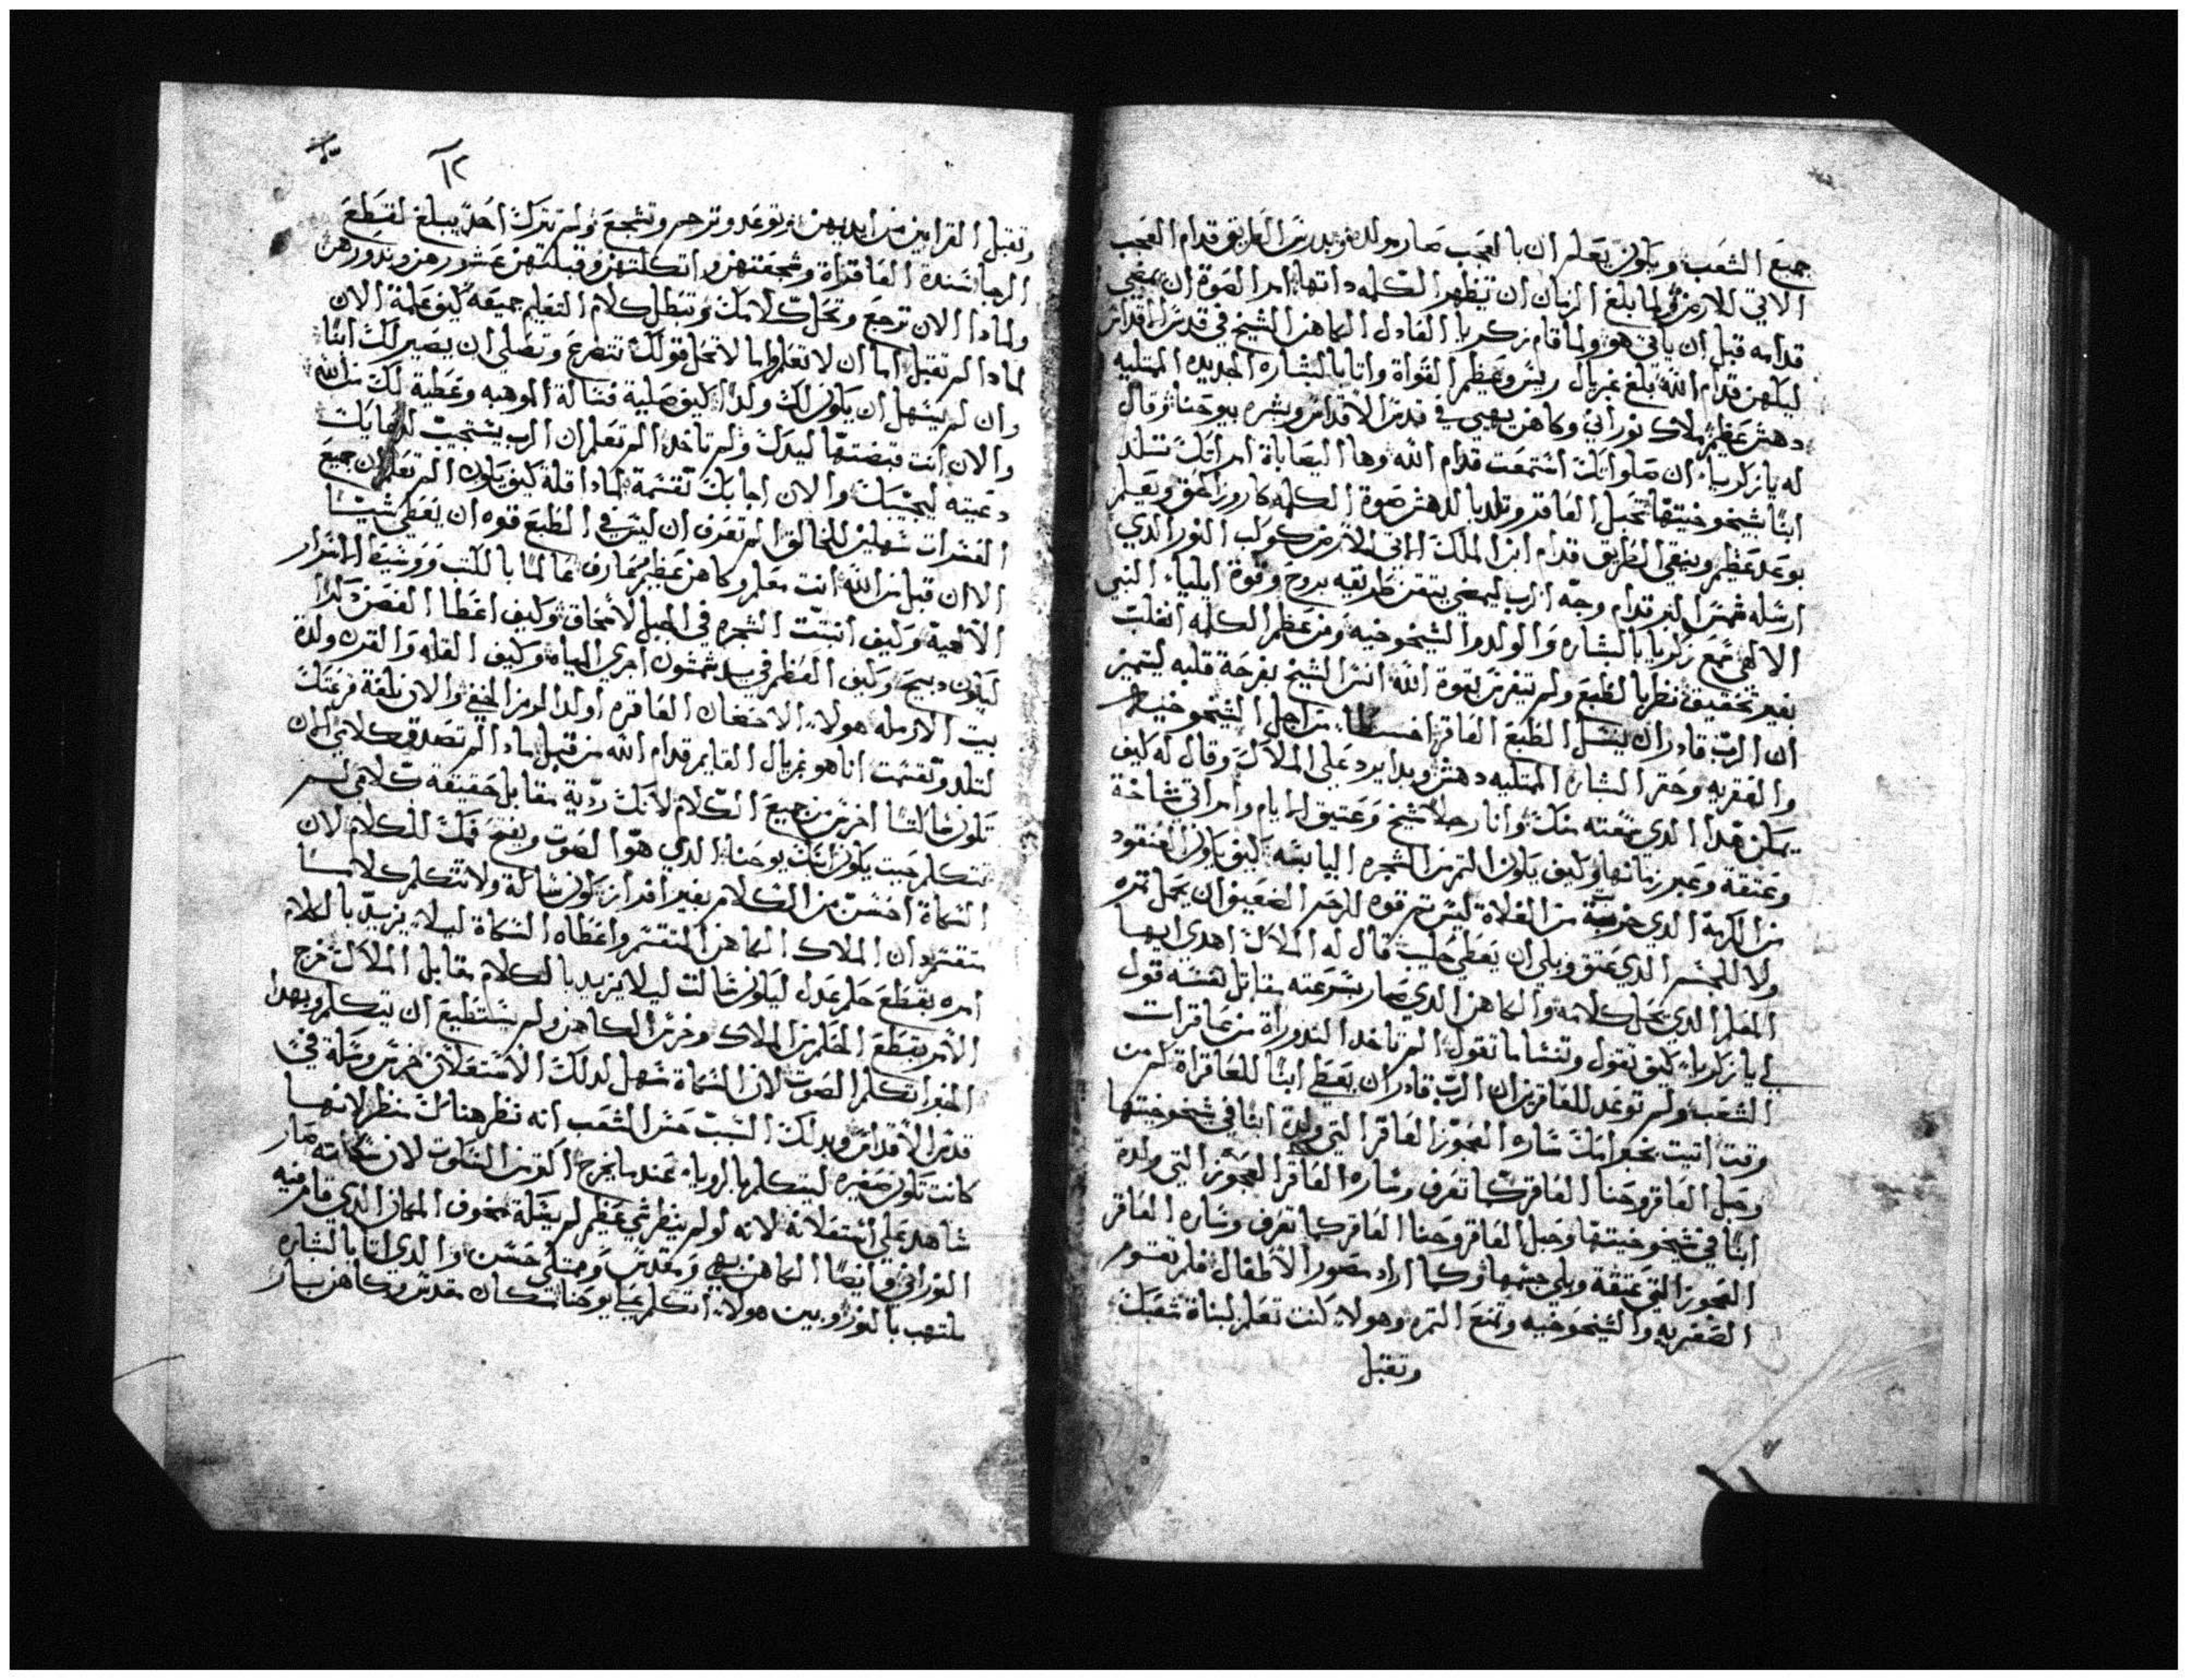 جميع الشعب ويكون يعلم ان بالعجب صار مولده ويدرس الطريق قدام العجب
الاتي للارض ولما بلغ الزمان ان تظهر الكلمه داتها امر الصوة ان يمضي
قدامه قبل ان ياتي هو ولما قام زكريا الفادل الكاهن الشيخ في قدس الاقداس
ليكهن قدام الله بلغ غبريال ريس وعظم القواة واتا بالبشاره الجديده الممتليه
دهش عظيم ملاك نوراني وكاهن بهي في قدس الاقداس وبشره بيوحنا وقال
له يا زكريا ان صلواتك استمعت قدام الله وها اليصاباة امراتك تستلد
ابنًا بشيخوخيتها تحبل العاقر وتلد بالدهش صوة الكلمه كاروز الحق ويعلم
بوعد عظيم وينقي الطريق قدام ابن الملك الاتي للارض كوكب النور الدي
ارسله شمس البر قدام وجهه الرب ليمضي يتقن طريقه بروح وقوة ايلياء النبي
الالهي سمع زكريا بالبشاره والولد والشيخوخيه ومن عظم الكلمه انغلب
بغير تحقيق نظر بالطبع ولم يتفرس بقوة الله انسر الشيخ بفرحة قلبه ليتميز
ان الرب قادر ان ينسل الطبع العاقر من اجل الشيخوخيه
والعقريه وحقر البشاره الممتليه دهش وبدا يرد علي الملاك وقال له كيف
يمكن هدا الدي سمعته منك وانا رجلاً شيخ وعتيق الايام وامراتي شاخة
وعتقة وعبر زمانها وكيف يكون التمر من الشجره اليابسه كيف يكون العنقود
من الكرمة الدي من الفلاة ليس ثم قوه للرحم الضعيف ان يحمل تمره
ولا للجسم الدي عتق وبلي ان يعطي حليب قال له الملاك اهدي ايها
المعلم الدي يحل كلامه والكاهن الدي صار بسرعته يقاتل لنفسه قول
لي يا زكريا كيف تقول وتنسا ما تقول الم تاخد الندوراة من عاقرات
الشعب ولم توعد للعاقرين ان الرب قادر ان يعطي ابنًا للعاقراة كم من
وقت اتيت بخبر امك ساره العجوز العاقر التي ولدة ابنًا في شيخوختها
وحبل العاقر وحنا العاقر كما تعرف وساره العاقر العجوز التي ولدة
ابنًا في شيخوخيتها وحبل العاقر وحنا العاقر كما تعرف وساره العاقر
العجوز التي عتقة وبلي جسمها وكما اراد مصور الاطفال فلم تقوم
العقريه والشيخوخيه وتمنع التمره وهولاء كنت تعلم لبناة شعبك
وتقبل
١٢
وتقبل القرابين من ايديهن وتوعد وترحم وتشجع ولم تترك احد يبلغ لقطع
الرجا شندة العاقراة وشجعتهن واتكلتهن وقبلتهن عشورهن وندورهن
ولمادا الان ترجع وتحل كلامك وتبطل كلام التعليم جميعه كيف علمة الان
لمادا لم تقبل اما ان لا تعلم واما لا تحل قولك تتضرع وتصلي ان يصير لك ابنًا
وان لم يسهل ان يكون لك ولدًا كيف صلية فسالة الموهبه وعطية لك من الله
والان انت قبضتها ليدك ولم تاخد الم تعلم ان الرب يستجيب لدعايك
دعيته ليجيبك والان اجابك تقسمة لمادا قلة كيف يكون الم تعلم ان جميع
العسرات سهلين للخالق الم تعرف ان ليس في الطبع قوه ان يعطي شيئًا
الا ان قبل من الله انت معلم وكاهن عظيم عارف عالمًا بالكتب الاسرار
الالهية وكيف انبتت الشجره في الجبل لاسحاق وكيف اعطا الغصن كبدًا
ليكون دبيحة وكيف العظم في يد شمشون اجري المياه وكيف القله والقرن ولدة
بيت الارمله هولاء الاحضان العاقره اولد الرمز الخفي والان بلغة قرعتك
لتلد وتقسمت انا هو غبريال القايم قدام الله من قبل مادا لم تصدق كلامي الان
تكون ساكتًا اخرس من جميع الكلام لانك ردية مقابل حقيقة كلامي لم
تتكلم حيت يكون ابنك يوحنا الدي هو الصوت ويفتح فمك للكلام لان
السكاة احسن من الكلام بغير افراز تكون ساكة ولا تتكلم كلامًا
متقسم ان الملاك الكاهن المنقسم واعطاه السكاة ليلا يزيد بالكلام
امره بقطع حلم عدل ليكون ساكت ليلا يزيد بالكلام مقابل الملاك خرج
الامر بقطع الحلم من الملاك وخرس الكاهن ولم يستطيع ان يتكلم وبهدا
الخبر اتكلم الصوت لان السكاة سهل لدلك الاستعلان خرس وسكة في
قدس الاقداس وبدلك السبب حس الشعب انه نظر هناك منظر لانها
كانت تكون صغيره ليتكلم بالرويا عندما يخرج اكتر من السكوت لان سكاته صار
شاهد علي استعلانه لانه لو لم ينظر شي عظيم لم يسكة مخوف المكان الدي قام فيه
النوراني وايضًا الكاهن بهي ومقدس وممتلي حسن والدي اتا بالبشاره
ملتهب بالنور وبين هولاء اتكلم علي يوحنا مسكان مقدس وكاهن سار